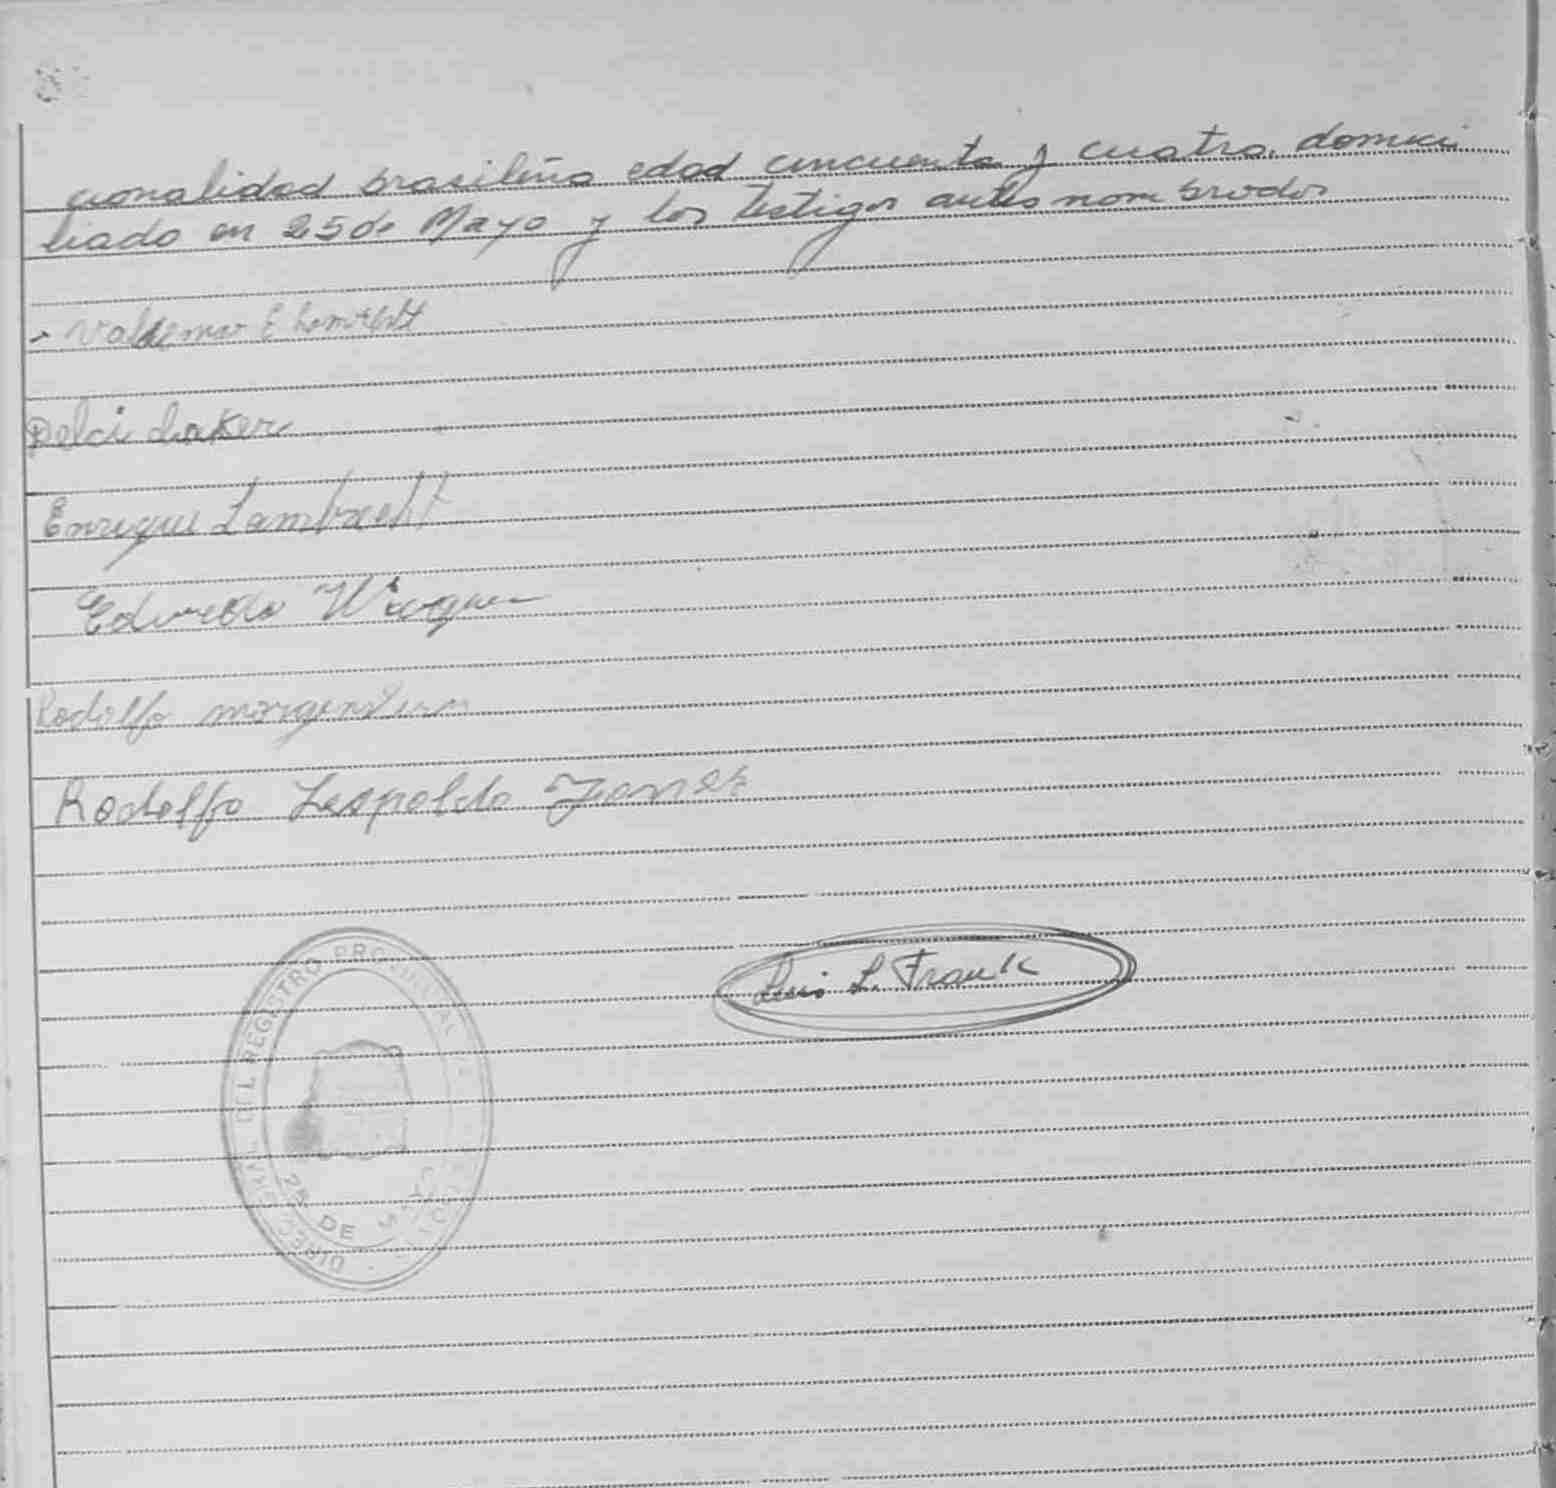 cionalidad brasileña edad cincuenta y cuatro, domici
liado en 25 de Mayo y los testigos antes nombrados
Valdemar E Lambrecht
Delci
Enrique Lambrecht
Eduardo Wagner
Rodolfo morgenstern
Rodolfo Leopoldo
Luis L. Frank
REGISTRO PROVINCIAL
25 DE